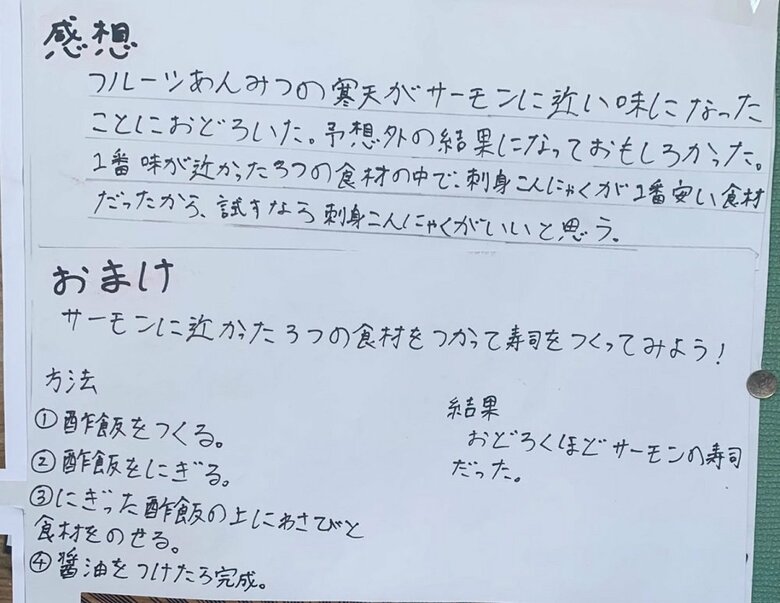 感想
フルーツあんみつの寒天がサーモンに近い味になった
ことにおどろいた。予想外の結果になっておもしろかった。
1番味が近かった3つの食材の中で、刺身こんにゃくが1番安い食材
だったから、試すなら刺身こんにゃくがいいと思う。
おまけ
サーモンに近かった3つの食材をつかって寿司をつくってみよう!
方法
①酢飯をつくる。
②酢飯をにぎる。
③にぎった酢飯の上にわさびと
食材をのせる。
④醤油をつけたら完成。
結果
おどろくほどサーモンの寿司
だった。